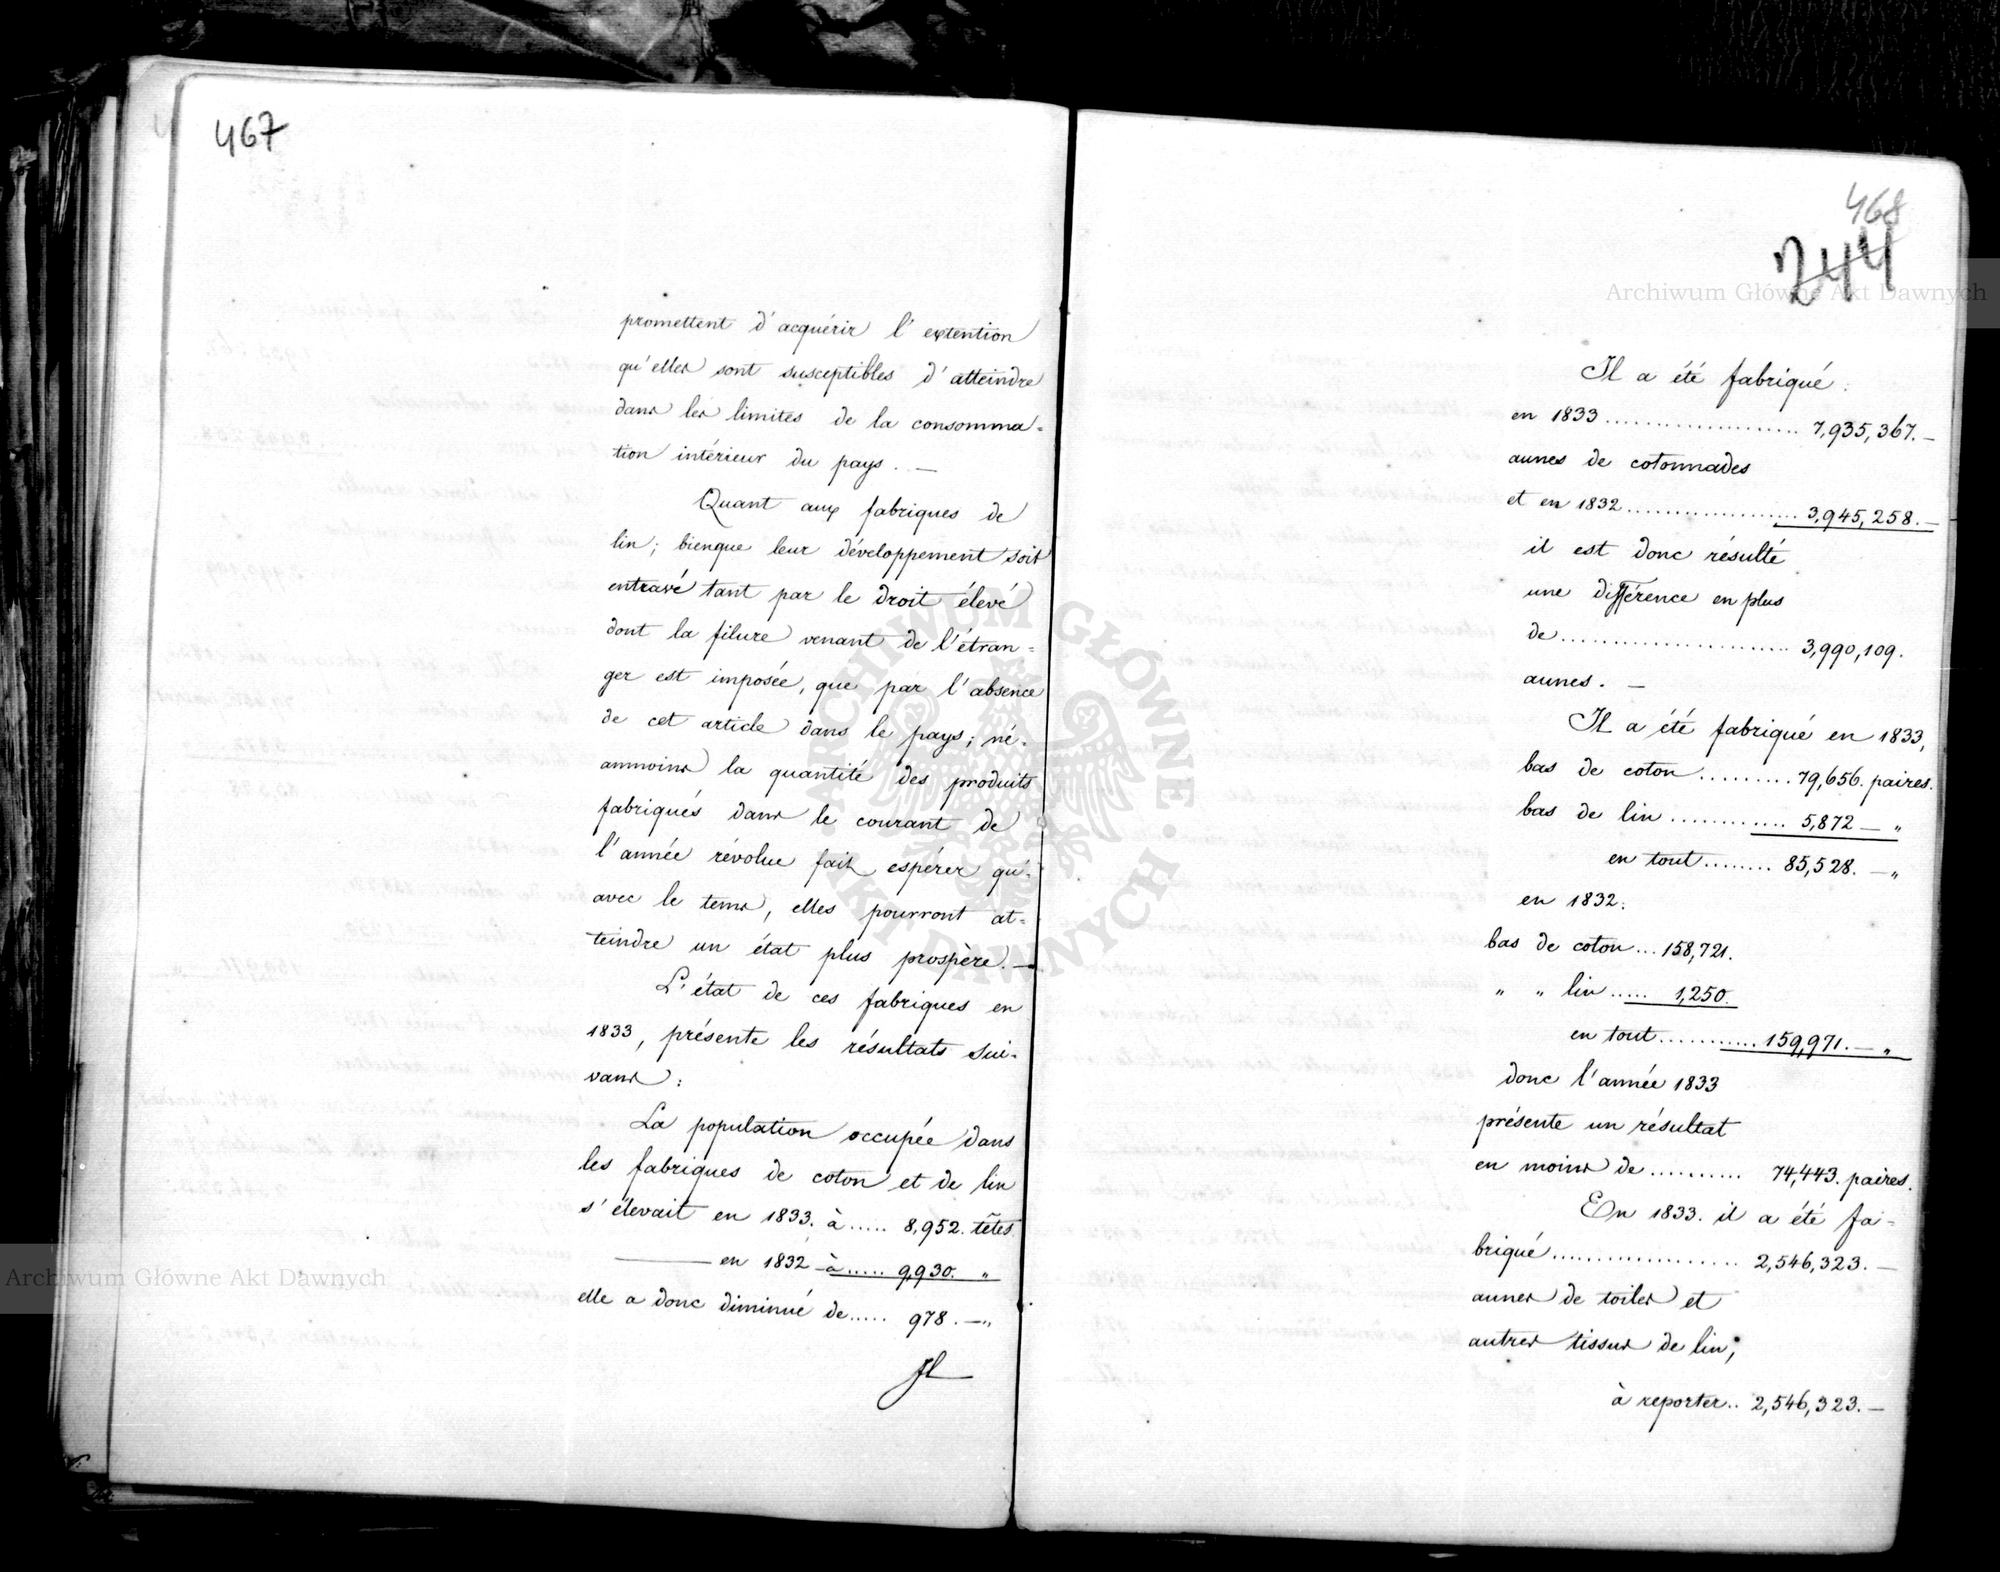 467
promettent d'acquérir l'extention
qu'elles sont susceptibles d'atteindre
dans les limites de la consomma=
tion intérieur du pays. —
Quant aux fabriques de
lin; bienque leur développement soit
entravé tant par le droit élevé
dont la filure venant de l'étran=
ger est imposée, que par l'absence
de cet article dans le pays; né=
anmoins la quantité des produits
fabriqués dans le courant de
l'année révolue fait espérer qu'=
avec le tems, elles pourront at=
teindre un état plus prospère. —
L'état de ces fabriques en
1833, présente les résultats sui=
vans:
La population occupée dans
les fabriques de coton et de lin
s'élevait en 1833. à ..... 8,952. têtes
——— en 1832 à ..... 9,930. "
elle a donc diminué de ..... 978. — "
Il
468
244
Il a été fabriqué:
en 1833 .................... 7,935,367. —
aunes de cotonnades
et en 1832 .................. 3,945,258. —
il est donc résulté
une différence en plus
de ........................ 3,990,109.
aunes. —
Il a été fabriqué en 1833,
bas de coton ......... 79,656. paires.
bas de lin ............ 5,872 — "
en tout ........ 85,528. — "
en 1832:
bas de coton ... 158,721.
" " lin ..... 1,250.
en tout ........... 159,971. — "
donc l'année 1833
présente un résultat
en moins de .......... 74,443. paires.
En 1833. il a été fa=
briqué .................... 2,546,323. —
aunes de toiles et
autres tissus de lin;
à reporter .. 2,546,323. —
Archiwum Główne Akt Dawnych
Archiwum Główne Akt Dawnych
ARCHIWUM GŁÓWNE · AKT DAWNYCH ·